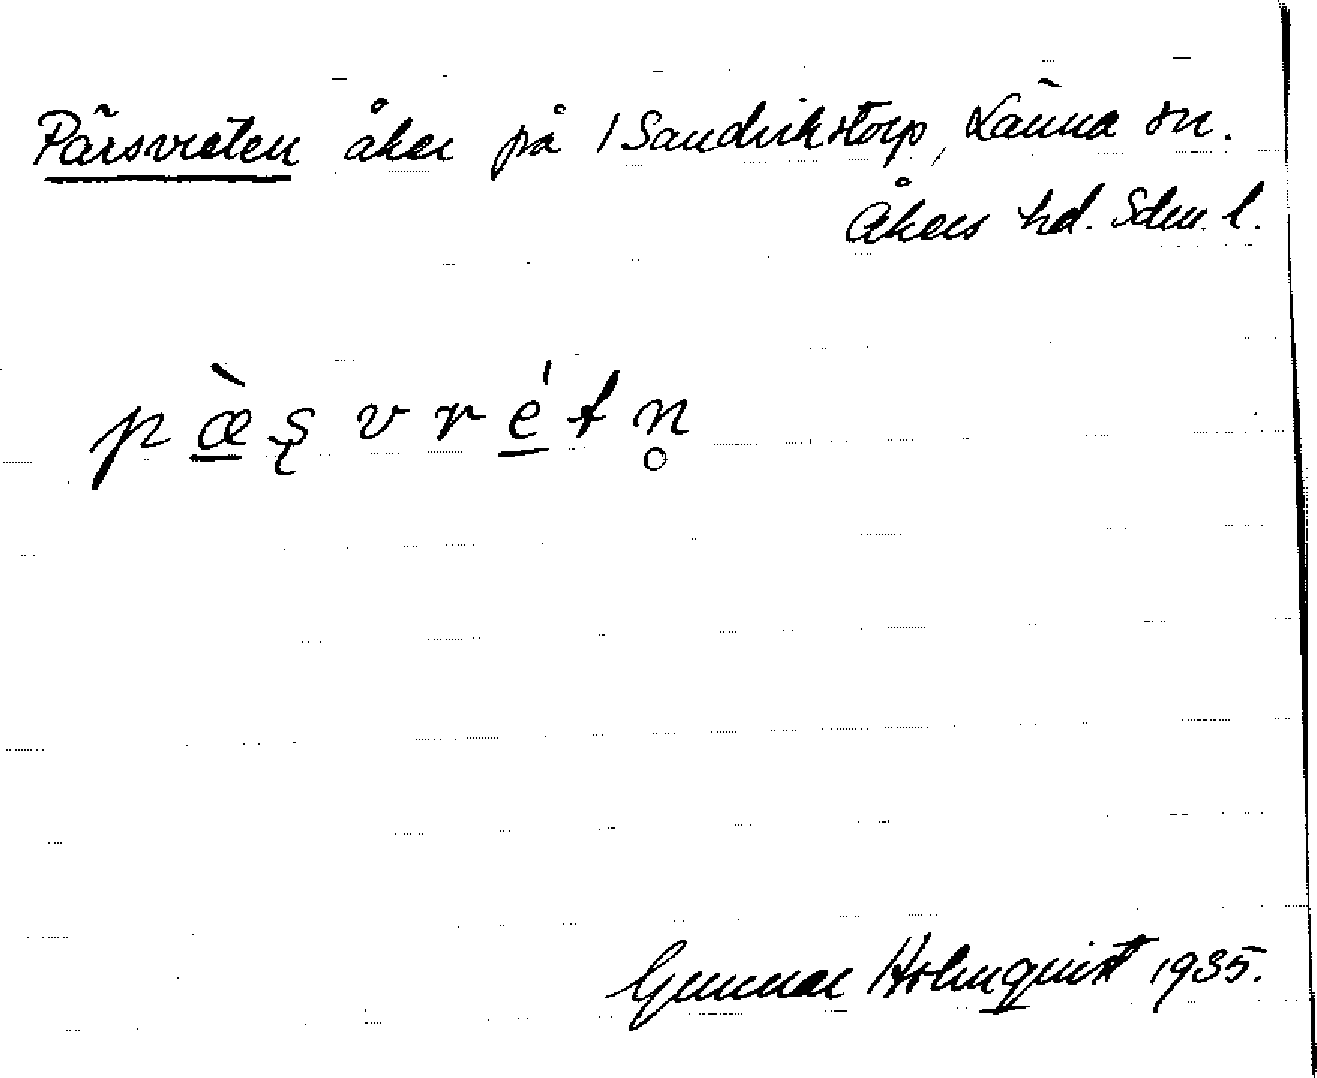 Pärsvreten åker på 1 Sandvikstorp, Länna sn.
Åkers hd. Sdm. l.
p æ̀ ʂ v r é t n̥
Gunnar Holmquist 1935.